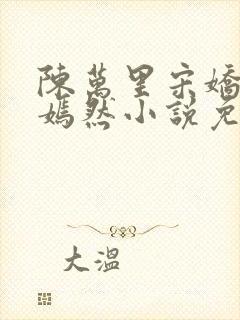 陳萬里宋嬌
嫣然小說免
大溫